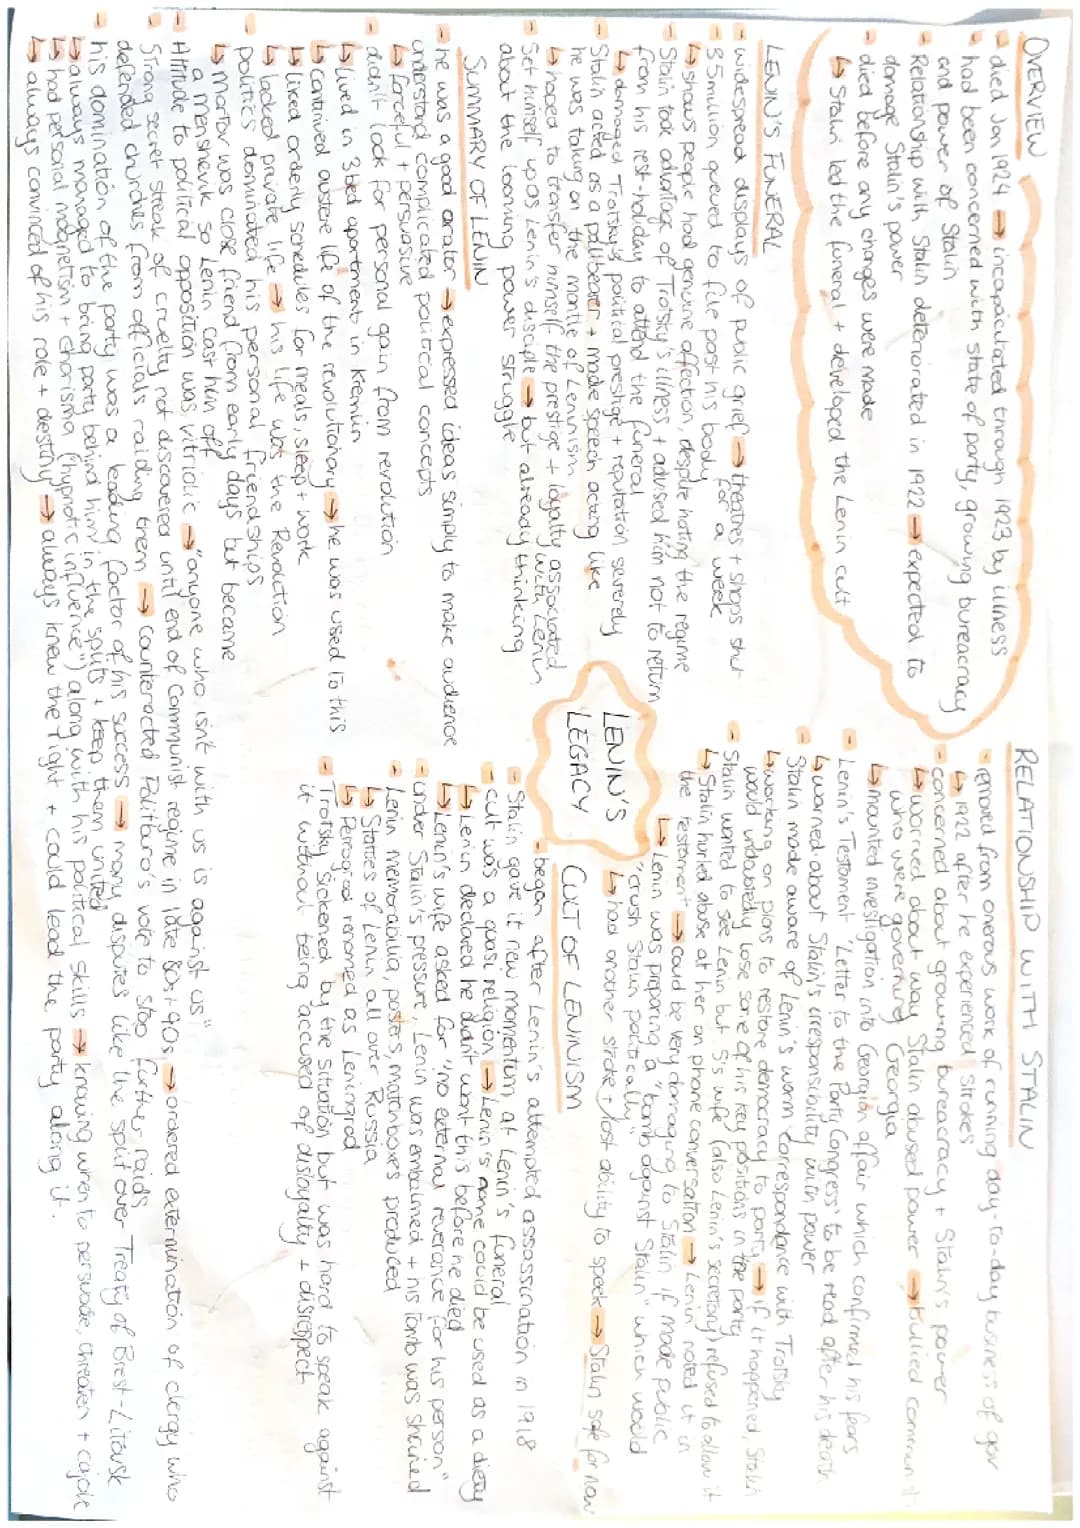 OVERVIEW
- died Jan 1924 → incapacitated through 1923 by illness
- had been concerned with state of party, growing bureacracy
and power of Stalin
- Relationship with Stalin deteriorated in 1922 → expected to
damage Stalin's power
- died before any changes were made
↳ Stalin led the funeral + developed the Lenin cult
LENIN'S FUNERAL
- widespread displays of public grief → theatres + shops shut
for a week
- 3.5million queued to file past his body
↳ shows people had genuine affection, despite hating the regime
- Stalin took advantage of Trotsky's illness + advised him not to return
from his rest-holiday to attend the funeral
↳ damaged Trotsky's political prestige + reputation severely
- Stalin acted as a pallbearer + made speech acting like
he was taking on the mantle of Leninism
↳ hoped to transfer himself the prestige + loyalty associated
with Lenin
- Set himself up as Lenin's disciple → but already thinking
about the looming power struggle
SUMMARY OF LENIN
- he was a good orator → expressed ideas simply to make audience
understand complicated political concepts
↳ forceful + persuasive
- didn't look for personal gain from revolution
↳ lived in 3 bed apartment in Kremlin
↳ continued austere life of the revolutionary → he was used to this
↳ lived orderly schedules for meals, sleep + work
↳ lacked private life → his life was the Revolution
- politics dominated his personal friendships
↳ martov was close friend from early days but became
a menshevik so Lenin cast him off
- Attitude to political opposition was vitriolic → "anyone who isn't with us is against us"
- Strong secret streak of cruelty not discovered until end of Communist regime in late 80s + 90s → ordered extermination of clergy who
defended churches from officials raiding them → counteracted Politburo's vote to stop further raids
- his domination of the party was a leading factor of his success → many disputes like the split over Treaty of Brest-Litovsk
↳ always managed to bring party behind him in the splits + keep them united
↳ had personal magnetism + charisma ("hypnotic influence") along with his political skills → knowing when to persuade, threaten + cajole
↳ always convinced of his role + destiny → always knew the right + could lead the party along it.
LENIN'S
LEGACY
RELATIONSHIP WITH STALIN
- removed from onerous work of running day-to-day business of gov
↳ 1922 after he experienced strokes
- concerned about growing bureacracy + Stalin's power
↳ worried about way Stalin abused power → bullied communists
who were governing Georgia
↳ mounted investigation into Georgian affair which confirmed his fears
- Lenin's Testament 'Letter to the Party Congress' to be read after his death
↳ warned about Stalin's irresponsibility with power
- Stalin made aware of Lenin's warm correspondance with Trotsky
↳ working on plans to restore democracy to party → if it happened, Stalin
would undoubtedly lose some of his key positions in the party
- Stalin wanted to see Lenin but S's wife (also Lenin's secretary) refused to allow it
↳ Stalin hurled abuse at her on phone conversation → Lenin noted it in
the testament → could be very damaging to Stalin if made public
↳ Lenin was preparing a "bomb against Stalin" which would
"crush Stalin politically"
↳ had another stroke + lost ability to speek → Stalin safe for now
CULT OF LENINISM
- began after Lenin's attempted assassination in 1918
- Stalin gave it new momentum at Lenin's funeral
- cult was a quasi religion → Lenin's name could be used as a diety
↳ Lenin declared he didn't want this before he died
↳ Lenin's wife asked for "no external reverance for his person"
- under Stalin's pessure, Lenin was embalmed + his tomb was shrined
- Lenin memorabilia, posters, matchboxes produced
↳ Statues of Lenin all over Russia
↳ Petrograd renamed as Leningrad
- Trotsky sickened by the situation but was hard to speak against
it without being accused of disloyalty + disrespect